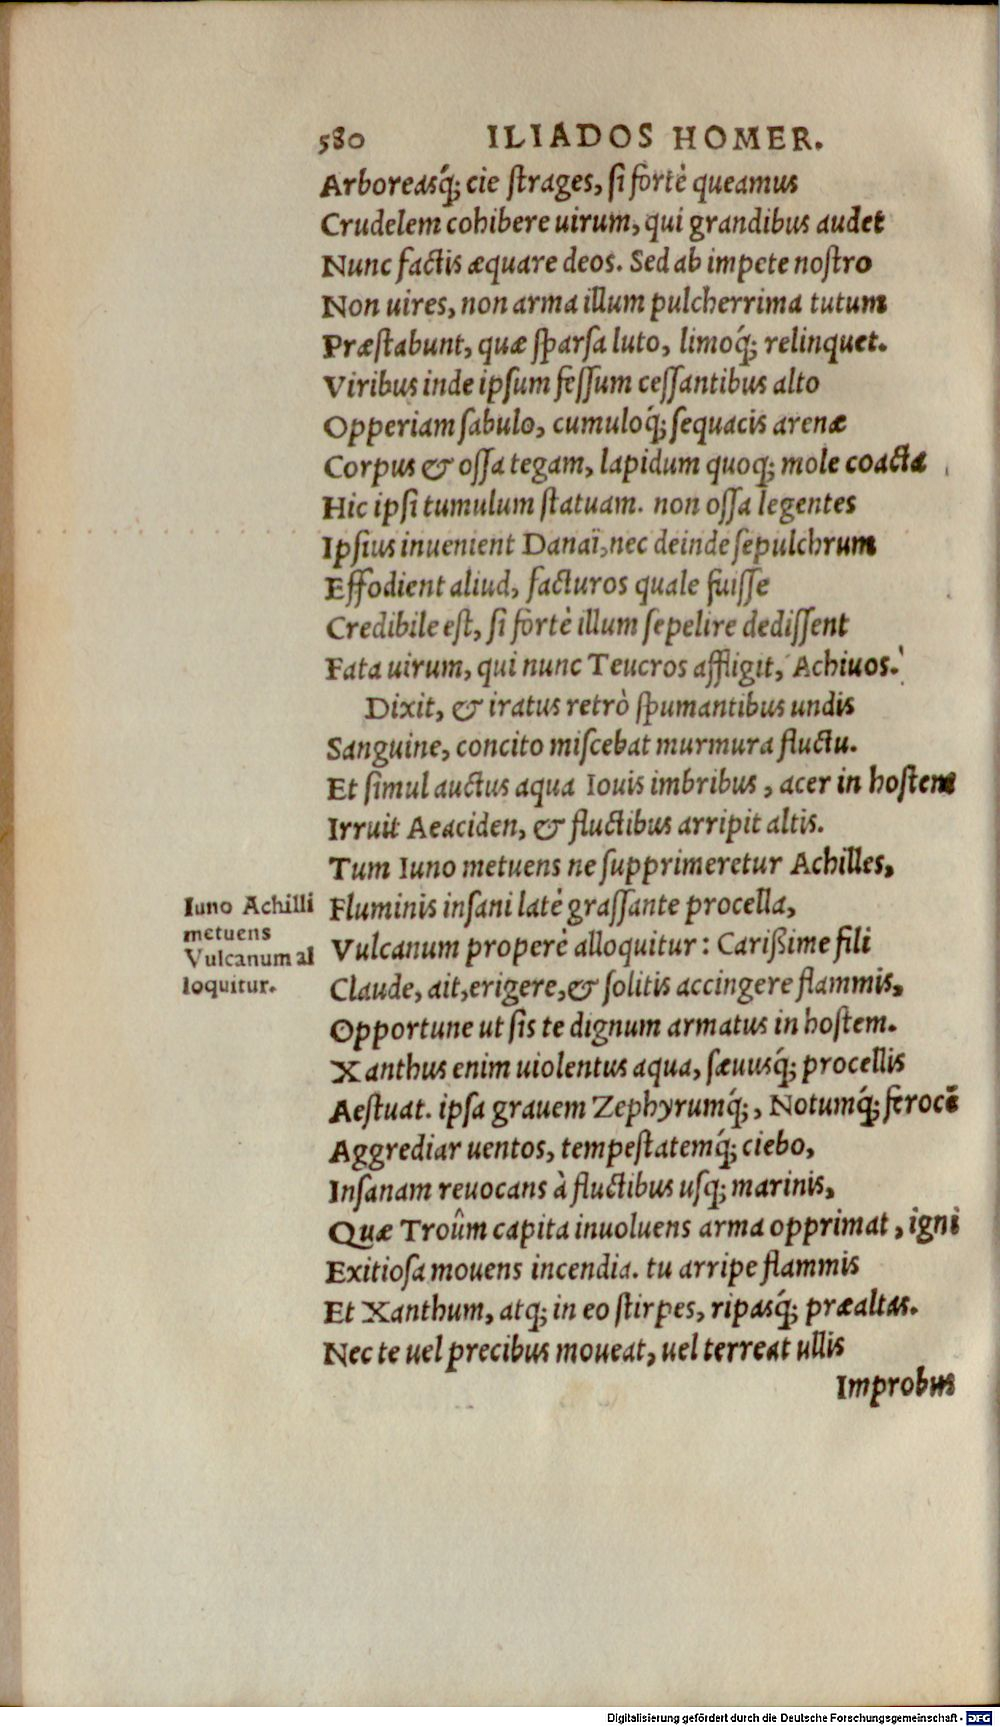 580 ILIADOS HOMER.
Arboreasq́; cie strages, si fortè queamus
Crudelem cohibere uirum, qui grandibus audet
Nunc factis æquare deos. Sed ab impete nostro
Non uires, non arma illum pulcherrima tutum
Præstabunt, quæ sparsa luto, limoq́; relinquet.
Viribus inde ipsum fessum cessantibus alto
Opperiam sabulo, cumuloq́; sequacis arenæ
Corpus & ossa tegam, lapidum quoq; mole coacta
Hic ipsi tumulum statuam. non ossa legentes
Ipsius inuenient Danaï, nec deinde sepulchrum
Effodient aliud, facturos quale fuisse
Credibile est, si fortè illum sepelire dedissent
Fata uirum, qui nunc Teucros affligit, Achiuos.
Dixit, & iratus retrò spumantibus undis
Sanguine, concito miscebat murmura fluctu.
Et simul auctus aqua Iouis imbribus, acer in hostem
Irruit Aeaciden, & fluctibus arripit altis.
Tum Iuno metuens ne supprimeretur Achilles,
Iuno Achilli
metuens
Vulcanum al
loquitur.
Fluminis insani latè grassante procella,
Vulcanum properè alloquitur: Carißime fili
Claude, ait, erigere, & solitis accingere flammis,
Opportune ut sis te dignum armatus in hostem.
Xanthus enim uiolentus aqua, sæuusq́; procellis
Aestuat. ipsa grauem Zephyrumq́;, Notumq́; ferocẽ
Aggrediar uentos, tempestatemq́; ciebo,
Insanam reuocans à fluctibus usq; marinis,
Quæ Troûm capita inuoluens arma opprimat, igni
Exitiosa mouens incendia. tu arripe flammis
Et Xanthum, atq; in eo stirpes, ripasq́; præaltas.
Nec te uel precibus moueat, uel terreat ullis
Improbus
Digitalisierung gefördert durch die Deutsche Forschungsgemeinschaft - DFG